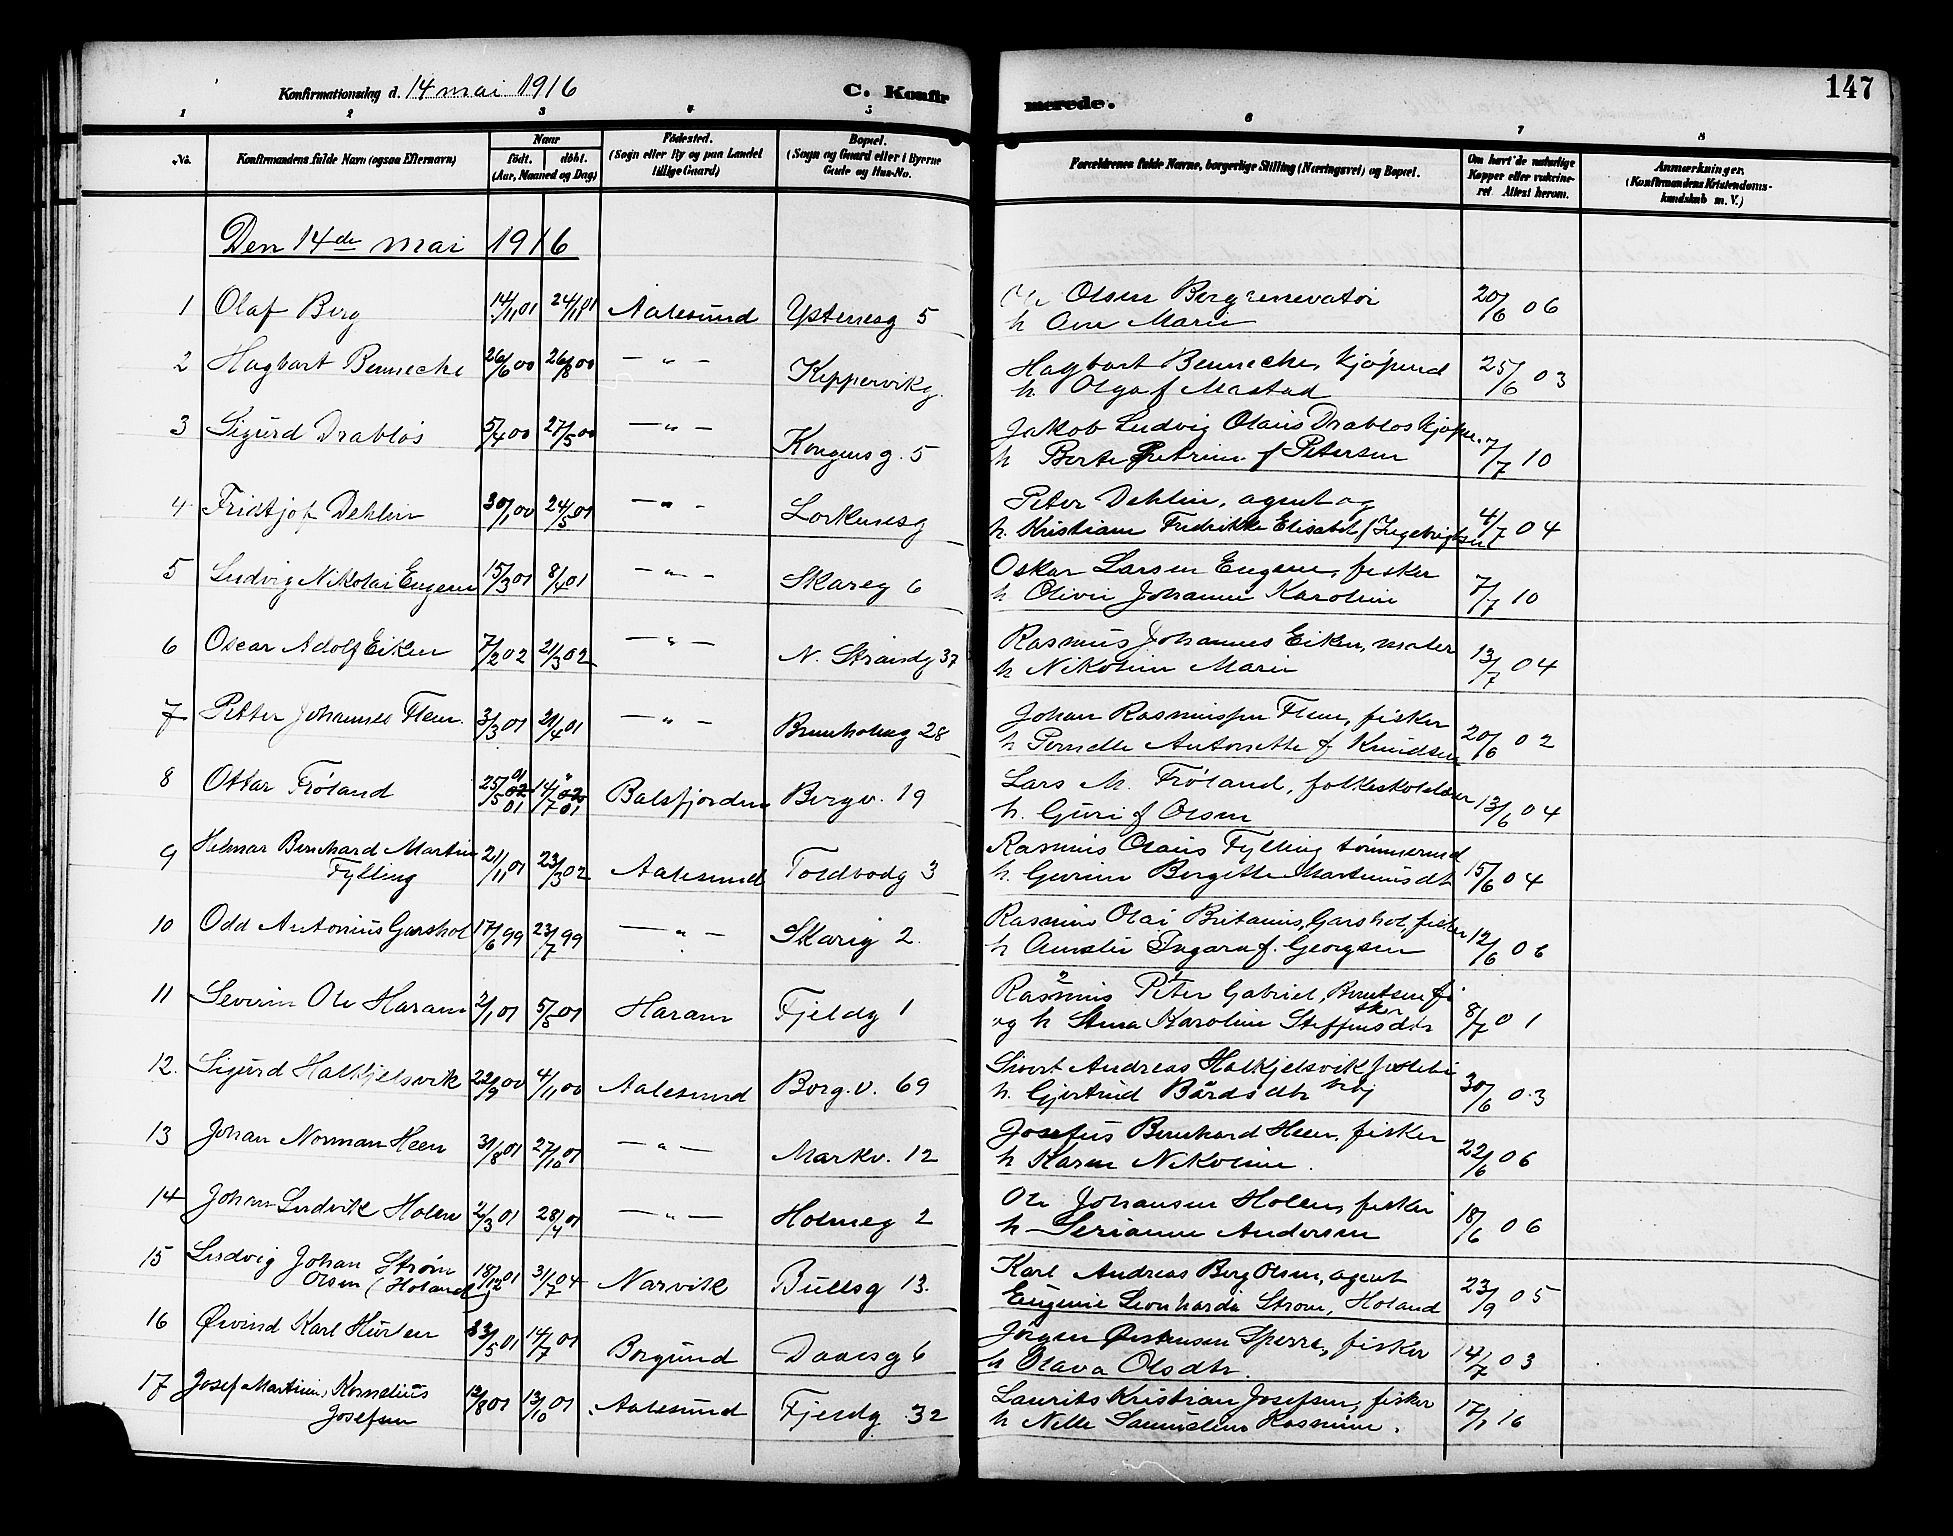 Konfirmationsdag d. 14 mai 1916
C. Konfir
merede.
147
1 2 3 4 5 6 7 8
No. Konfirmandens fulde Navn (ogsaa Efternavn) Naar født. døbt. (Aar, Maaned og Dag) Fødested. (Sogn eller By og paa Landet tillige Gaard) Bopæl. (Sogn og Gaard eller i Byerne Gade og Hus-No. Forældrenes fulde Navne, borgerlige Stilling (Næringsvei) og Bopæl. Om havt de naturlige Kopper eller vakcineret Attest herom. Anmærkninger. (Konfirmandens Kristendomskundskab m. V.)
Den 14de mai 1916
1 Olaf Berg 14/11 01 24/11 01 Aalesund Ystenesg 5 Olsen Berg renevatør 20/6 06
h Ane Marie
2 Hagbart Benneche 26/6 00 26/8 00 — " — Kippervikg. Hagbart Benneche, kjøpmd 25/6 03
h Olga f Mastad
3 Sigurd Drabløs 5/4 00 27/5 00 — " — Kongensg. 5 Jakob Ludvig Olaus Drabløs kjøpm. 7/7 10
h Berte Petrine f Petersen
4 Fridtjof Dehlin 30/1 00 24/5 01 — " — Lorkenesg Peter Dehlin, agent og
h. Kristiane Fredrikke Elisabet f Ingebrigtsen 4/7 04
5 Ludvig Nikolai Eugene 15/3 01 8/4 01 — " — Skareg 6 Oskar Larsen Eugene, fisker
h Olivie Johanne Karoline 7/7 10
6 Oscar Adolf Eiken 7/2 02 21/3 02 — " — N. Strandg 37 Rasmus Johannes Eiken, maler
h Nikoline Marie 13/7 04
7 Petter Johannes Flem 3/3 01 21/4 01 — " — Brunholmg 28 Johan Rasmussen Flem, fisker
h Pernelle Antonette f Knudsen 20/6 02
8 Ottar Frøland 25/5 01 14/7 01 Balsfjorden Bergv. 19 Lars M. Frøland, folkeskolelærer
h. Guri f Olsen 13/6 04
9 Helmar Bernhard Martin Fylling 21/11 01 23/3 02 Aalesund Toldbodg 3 Rasmus Olaus Fylling tømmermd
h. Gurine Bergitte Martinusdtr 15/6 04
10 Odd Antonius Garshol 17/6 99 23/7 99 — " — Skarig 2. Rasmus Olai Britanius, Garshol, fisker
h Amalie Ingara f. Georgsen 12/6 06
11 Severin Ole Haram 2/1 01 5/5 01 Haram Fjeldg 1 Rasmus Peter Gabriel Knutsen fisker
og h Stina Karoline Steffensdtr 8/7 01
12. Sigurd Halkjelsvik 22/9 00 4/11 00 Aalesund Borg.v. 69 Sivert Andreas Halkjelsvik
h. Gjertrud Bårdsdtr 30/6 03
13 Johan Norman Heen 31/8 01 27/10 01 — " — Markv. 12 Josefus Bernhard Heen, fisker
h Karen Nikoline. 22/6 06
14 Johan Ludvik Holen 2/3 01 28/4 01 — " — Holmeg 2 Ole Johansen Holen, fisker
h Serianne Andersen 18/6 06
15 Ludvig Johan Strøm Olsen (Holand) 18/12 01 31/7 04 Narvik Bullsg 13. Karl Andreas Berg Olsen, agent
Eugenie Leonharda Strøm, Holand 23/9 05
16 Øivind Karl Hurlen 3/5 01 14/7 01 Borgund Daaesg 6 Jørgen Sperre, fisker
h Olava Olsdtr. 14/7 03
17 Josef Martinius Kornelius Josefsen 12/8 01 13/10 01 Aalesund Fjeldg. 32 Laurits Kristian Josefsen, fisker
h Nelle Samueline Rasmine. 17/1 16